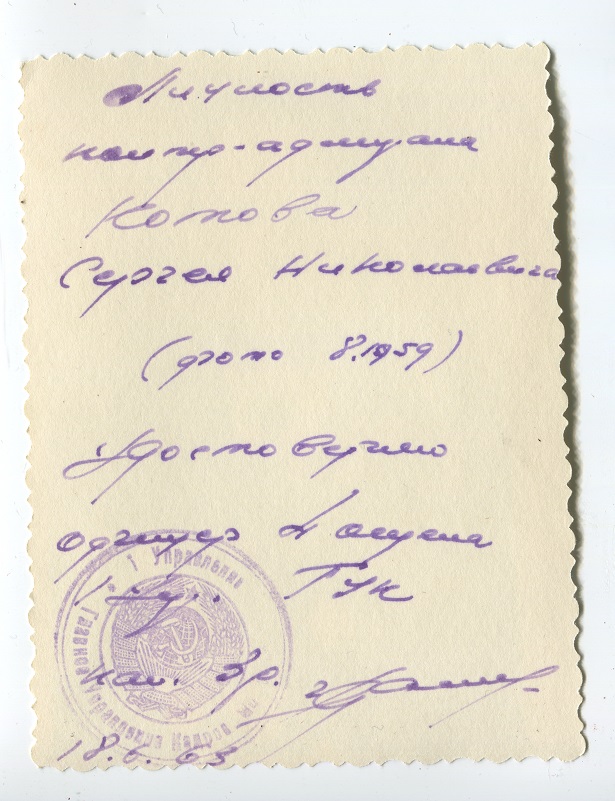 Личность
контр-адмирала
Котова
Сергея Николаевича
(фото 8.1959)
Удостоверяю
офицер
1 ГУК
кап. 3р.
18.6.65
1 Управление
Главное Управление Кадров